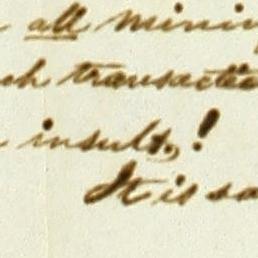 all mining
transactio
insults,!
It is sa